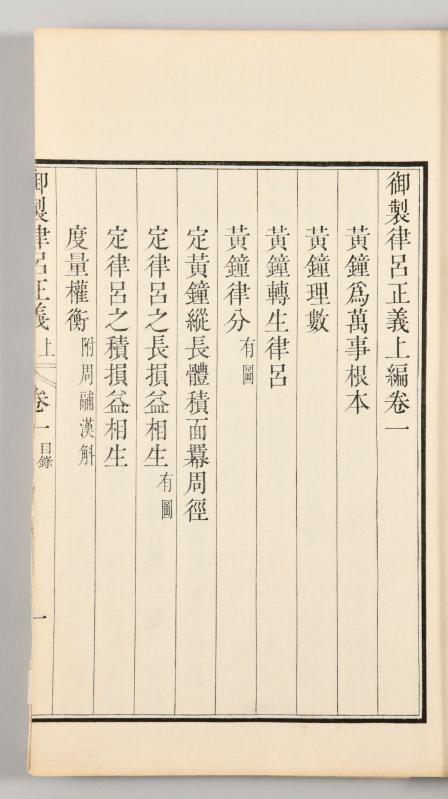 御製律呂正義上編卷一
黃鐘爲萬事根本
黃鐘理數
黃鐘轉生律呂
黃鐘律分有圖
定黃鐘縱長體積面羃周徑
定律呂之長損益相生有圖
定律呂之積損益相生
度量權衡附周鬴漢斛
御製律呂正義上 卷一 目錄 一